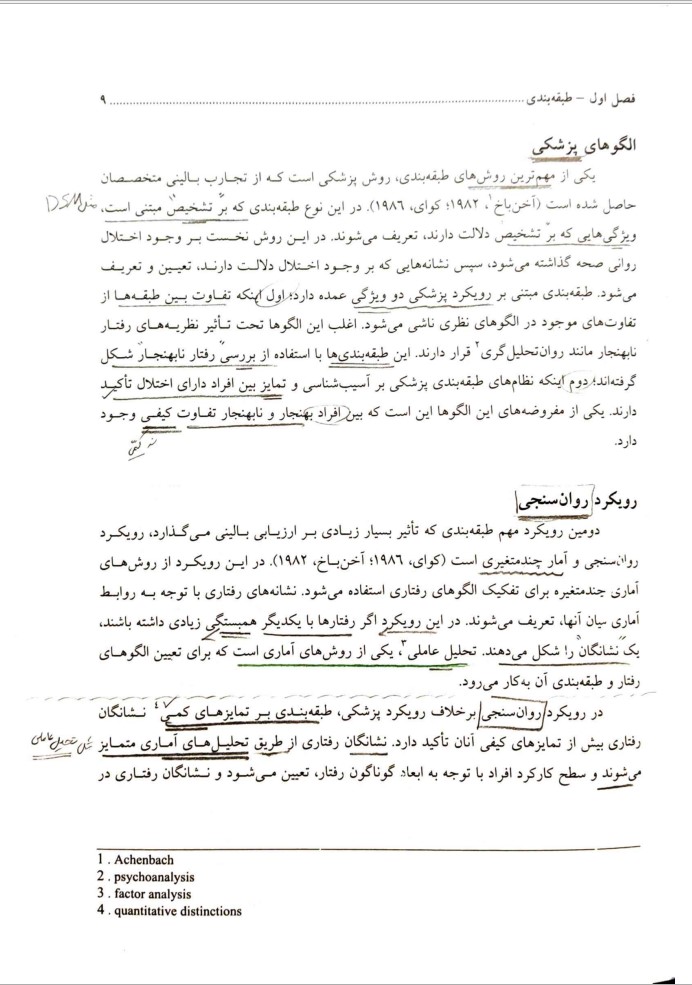 فصل اول – طبقه‌بندی ........................................................................ ۹
الگوهای پزشکی
یکی از مهم‌ترین روش‌های طبقه‌بندی، روش پزشکی است که از تجارب بالینی متخصصان
حاصل شده است (آخن‌باخ۱، ۱۹۸۲؛ کوای، ۱۹۸۶). در این نوع طبقه‌بندی که بر تشخیص مبتنی است، مثل DSM
ویژگی‌هایی که بر تشخیص دلالت دارند، تعریف می‌شوند. در این روش نخست بر وجود اختلال
روانی صحه گذاشته می‌شود، سپس نشانه‌هایی که بر وجود اختلال دلالت دارند، تعیین و تعریف
می‌شود. طبقه‌بندی مبتنی بر رویکرد پزشکی دو ویژگی عمده دارد؛ اول اینکه تفاوت بین طبقه‌ها از
تفاوت‌های موجود در الگوهای نظری ناشی می‌شود. اغلب این الگوها تحت تأثیر نظریه‌های رفتار
نابهنجار مانند روان‌تحلیل‌گری۲ قرار دارند. این طبقه‌بندی‌ها با استفاده از بررسی رفتار نابهنجار شکل
گرفته‌اند؛ دوم اینکه نظام‌های طبقه‌بندی پزشکی بر آسیب‌شناسی و تمایز بین افراد دارای اختلال تأکید
دارند. یکی از مفروضه‌های این الگوها این است که بین افراد بهنجار و نابهنجار تفاوت کیفی وجود
نه کمّی
دارد.
رویکرد روان‌سنجی
دومین رویکرد مهم طبقه‌بندی که تأثیر بسیار زیادی بر ارزیابی بالینی می‌گذارد، رویکرد
روان‌سنجی و آمار چندمتغیری است (کوای، ۱۹۸۶؛ آخن‌باخ، ۱۹۸۲). در این رویکرد از روش‌های
آماری چندمتغیره برای تفکیک الگوهای رفتاری استفاده می‌شود. نشانه‌های رفتاری با توجه به روابط
آماری میان آنها، تعریف می‌شوند. در این رویکرد اگر رفتارها با یکدیگر همبستگی زیادی داشته باشند،
یک "نشانگان" را شکل می‌دهند. تحلیل عاملی۳، یکی از روش‌های آماری است که برای تعیین الگوهای
رفتار و طبقه‌بندی آن به‌کار می‌رود.
در رویکرد روان‌سنجی برخلاف رویکرد پزشکی، طبقه‌بندی بر تمایزهای کمی۴ نشانگان
رفتاری بیش از تمایزهای کیفی آنان تأکید دارد. نشانگان رفتاری از طریق تحلیل‌های آماری متمایز مثل تحلیل عاملی
می‌شوند و سطح کارکرد افراد با توجه به ابعاد گوناگون رفتار، تعیین می‌شود و نشانگان رفتاری در
1 . Achenbach
2 . psychoanalysis
3 . factor analysis
4 . quantitative distinctions